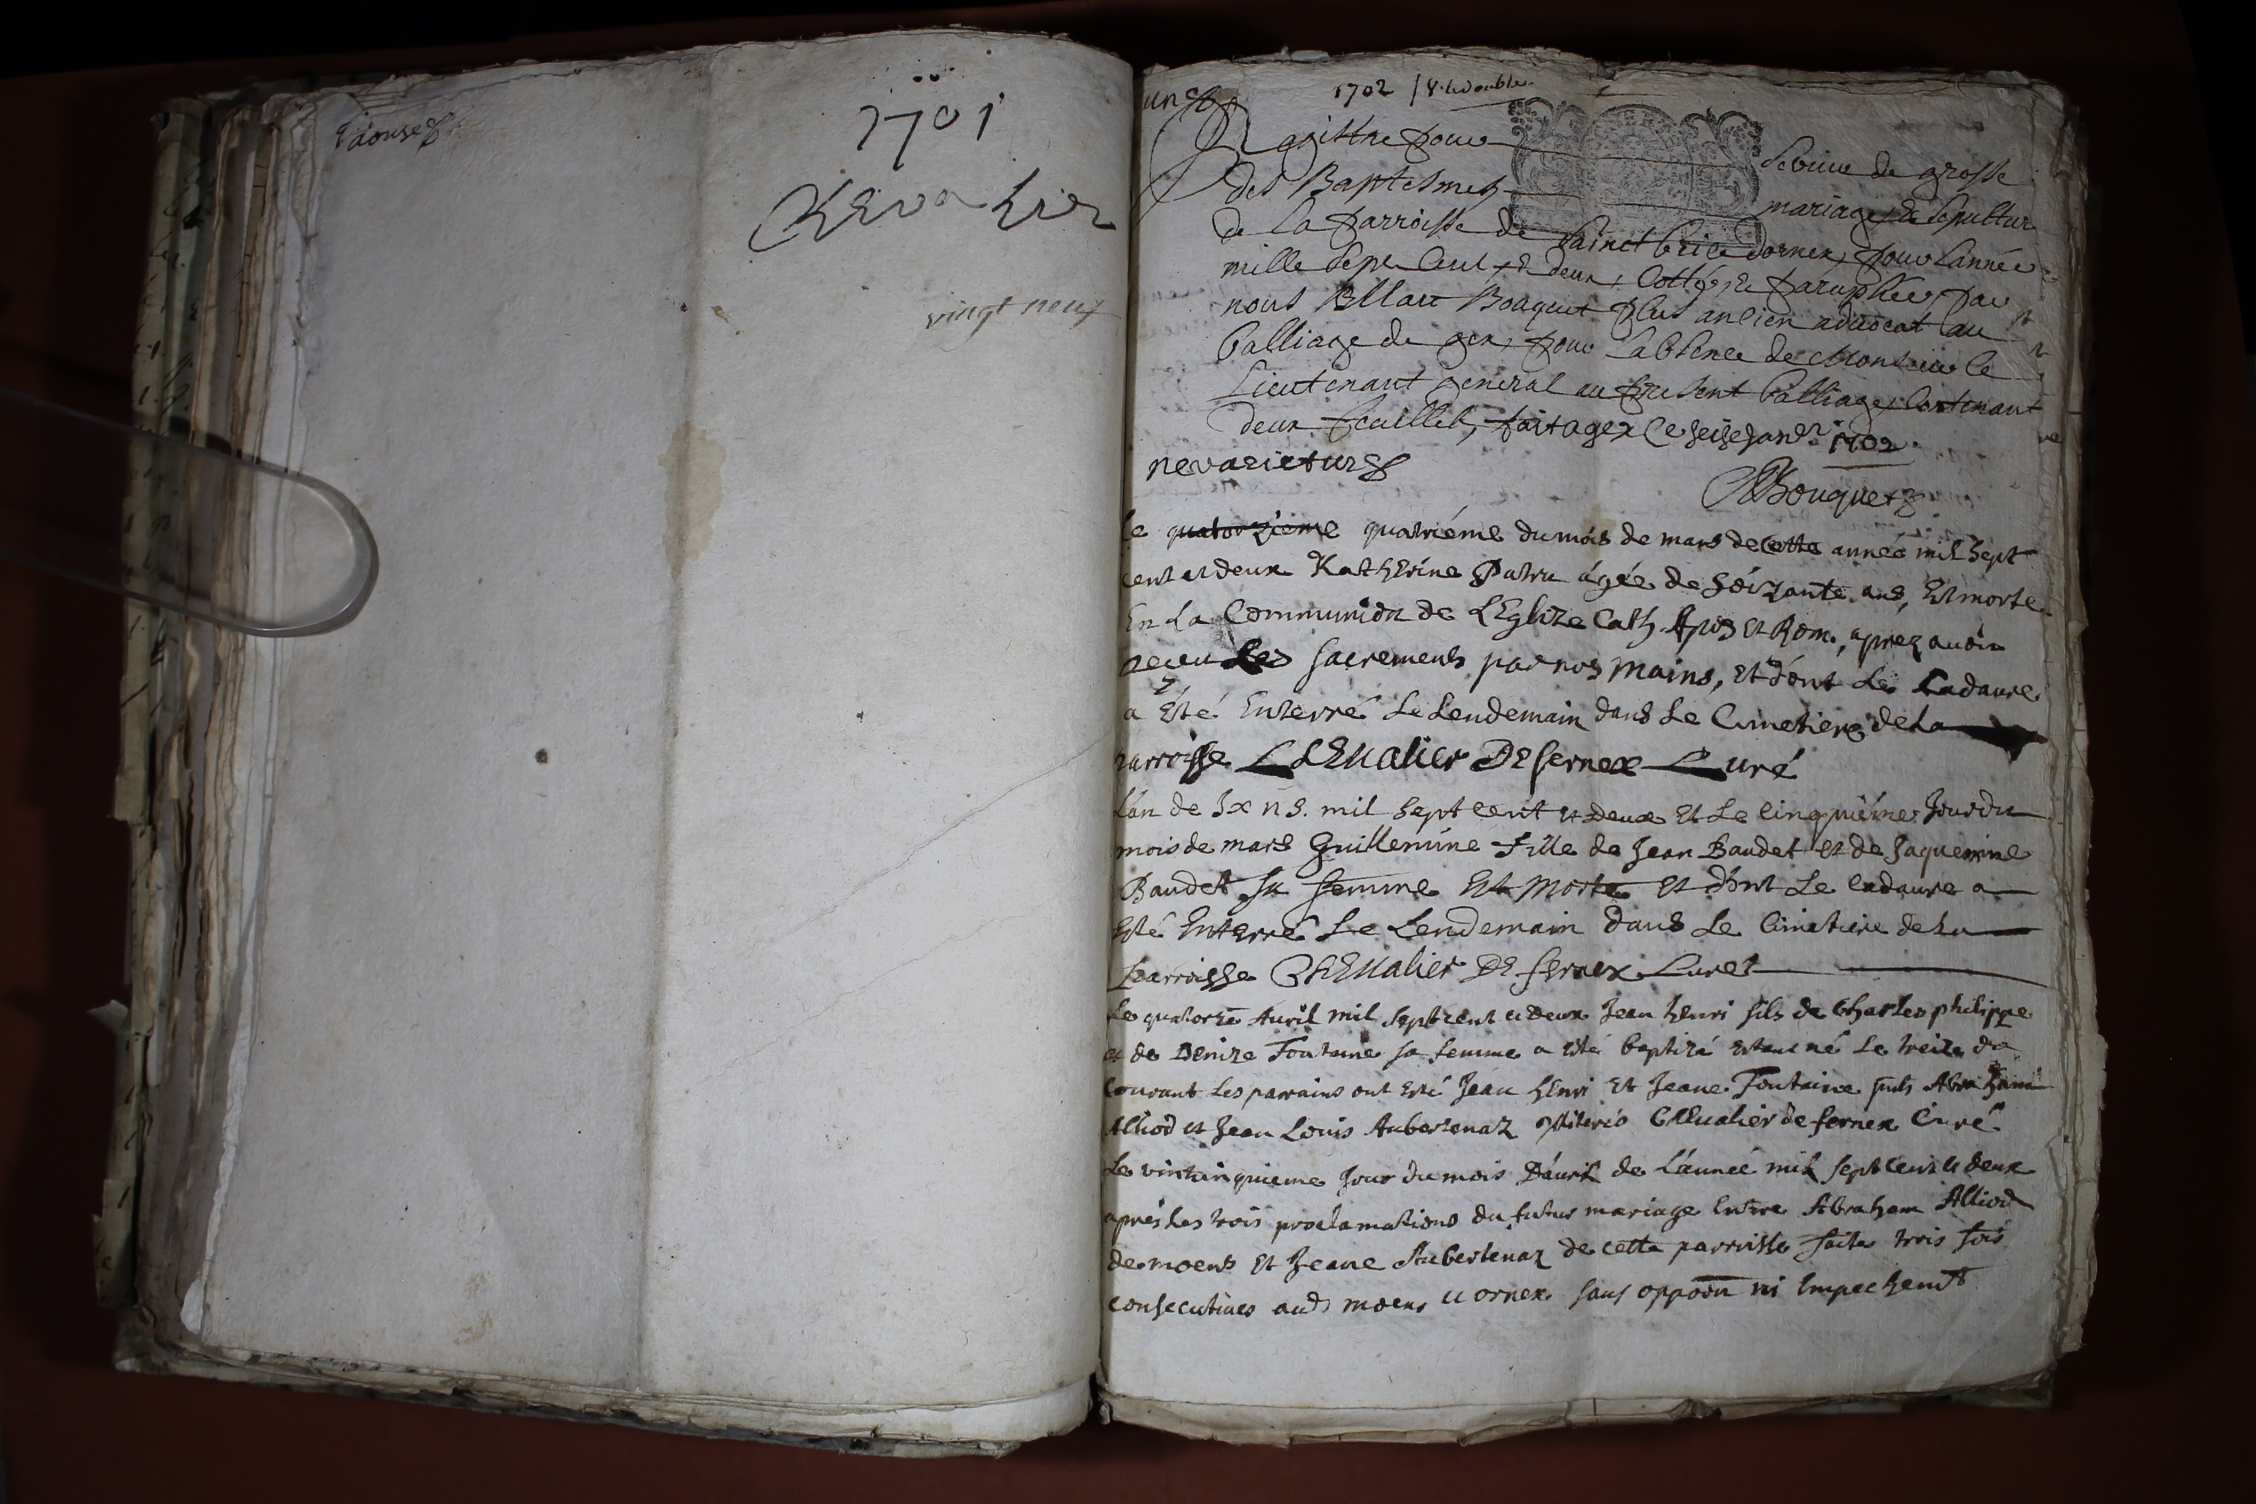 1701
Chevalier
vingt neuf
1702 / V. le double
Registre pour servir de grosse
des Baptesmes mariages & sepultur
de la parroisse de sainct brice dornex, pour lannée
mille sept cent & deux, cotté, & paraphée, par
nous Bouquet plus ancien advocat au
balliage de gex, pour labsence de Monsieur le
Lieutenant general au present balliage, contenant
deux feuillet, fait a gex ce seize janvr 1702
nevarietur
Bouquet
Le quatorzieme quatriéme du mois de mars de cette année mil sept
cent et deux Katherine Patru ágée de soizante ans, est morte
En la Communion de L'Eglize Cath. Apos et Rom., aprez avoir
receu Les sacrements par nos mains, et dont Le Cadavre
a Esté Enterré Le Lendemain dans Le Cimetiere de La
parroisse CHEvalier DE fernex Curé
L'an de mil sept cent et deux et Le cinquiéme Jour du
mois de mars Guillemine fille de Jean Baudet et de Jaquemine
Baudet sa femme Est Morte et dont Le cadavre a
Esté Enterré Le Lendemain dans Le Cimetiere de La
Parroisse CHEvalier DE fernex Curé
Le quatorze Avril mil sept cent et deux Jean henri fils de Charles philippe
et de Denize Fontaine sa femme a esté baptizé estant né Le treize du
Courant Les parrains ont esté Jean henri et Jeane Fontaine Abraham
Alliod et Jean Louis Aubertenaz illiterés CHEvalier de fernex Curé
Le vintcinquieme Jour du mois D'avril de L'année mil sept cent et deux
aprés Les trois proclamations du futur mariage Entre Abraham Alliod
de moens et Jeane Aubertenaz de cette parroisse faites trois fois
consecutives aud moens et ornex sans oppoon ni Empechemt